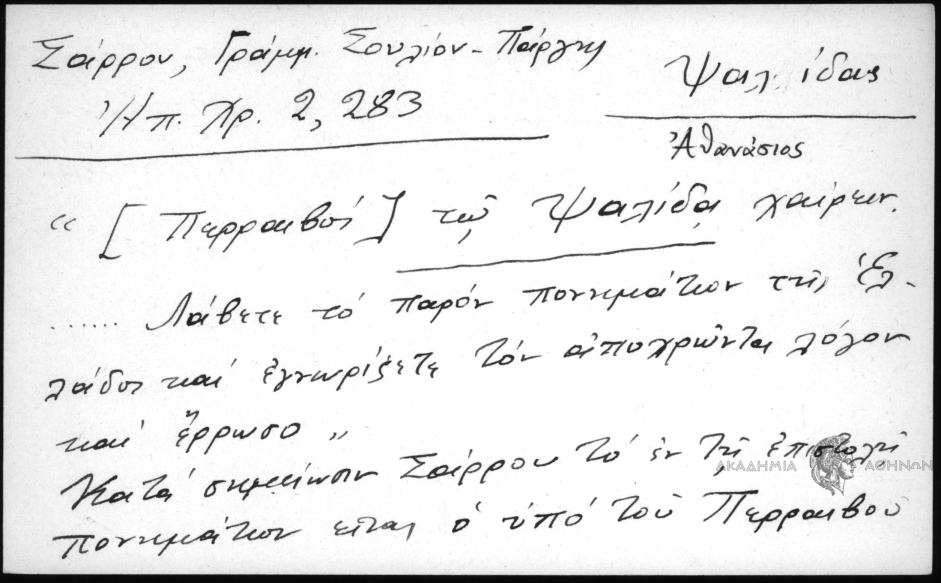 Σάρρου, Γράμμ. Σουλίου-Πάργης
Ἠπ. Χρ. 2, 283
Ψαλίδας
Ἀθανάσιος
“ [Περραιβός] τῷ Ψαλίδᾳ χαίρειν.
...... Λάβετε τό παρόν πονημάτιον τῆς Ἑλ-
λάδος καί ἐγνωρίζετε τόν ἀποχρῶντα λόγον
καί ἔρρωσο „
Κατά σημείωσιν Σάρρου τό ἐν τῇ ἐπιστολῇ
πονημάτιον εἶναι ὁ ὑπό τοῦ Περραιβοῦ
ΑΚΑΔΗΜΙΑ ΑΘΗΝΩΝ